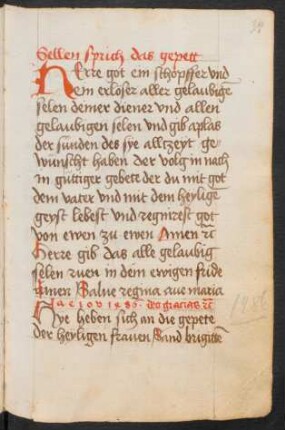 Sellen sprich das gepett
Herre got ein schöpffer vnd
ein erloser aller gelaubige
selen deiner diener vnd allen
gelaubigen selen vnd gib aplas
der sunden des sye allczeyt ge
wunscht haben der volg in nach
in guttiger gebete der du mit got
dem vater vnd mit dem heylige
geyst lebest vnd regnirest got
von ewen zu ewen Amen
Herre gib das alle gelaubig
selen ruen in dem ewigen fride
Amen Salue regina aue maria
deo gracias
Hye heben sich an die gepete
der heyligen frauen Sand brigitte